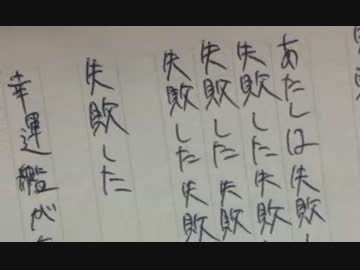 あたしは失敗し
失敗した失敗
失敗した失敗
失敗した失敗
失敗した
幸運艦が